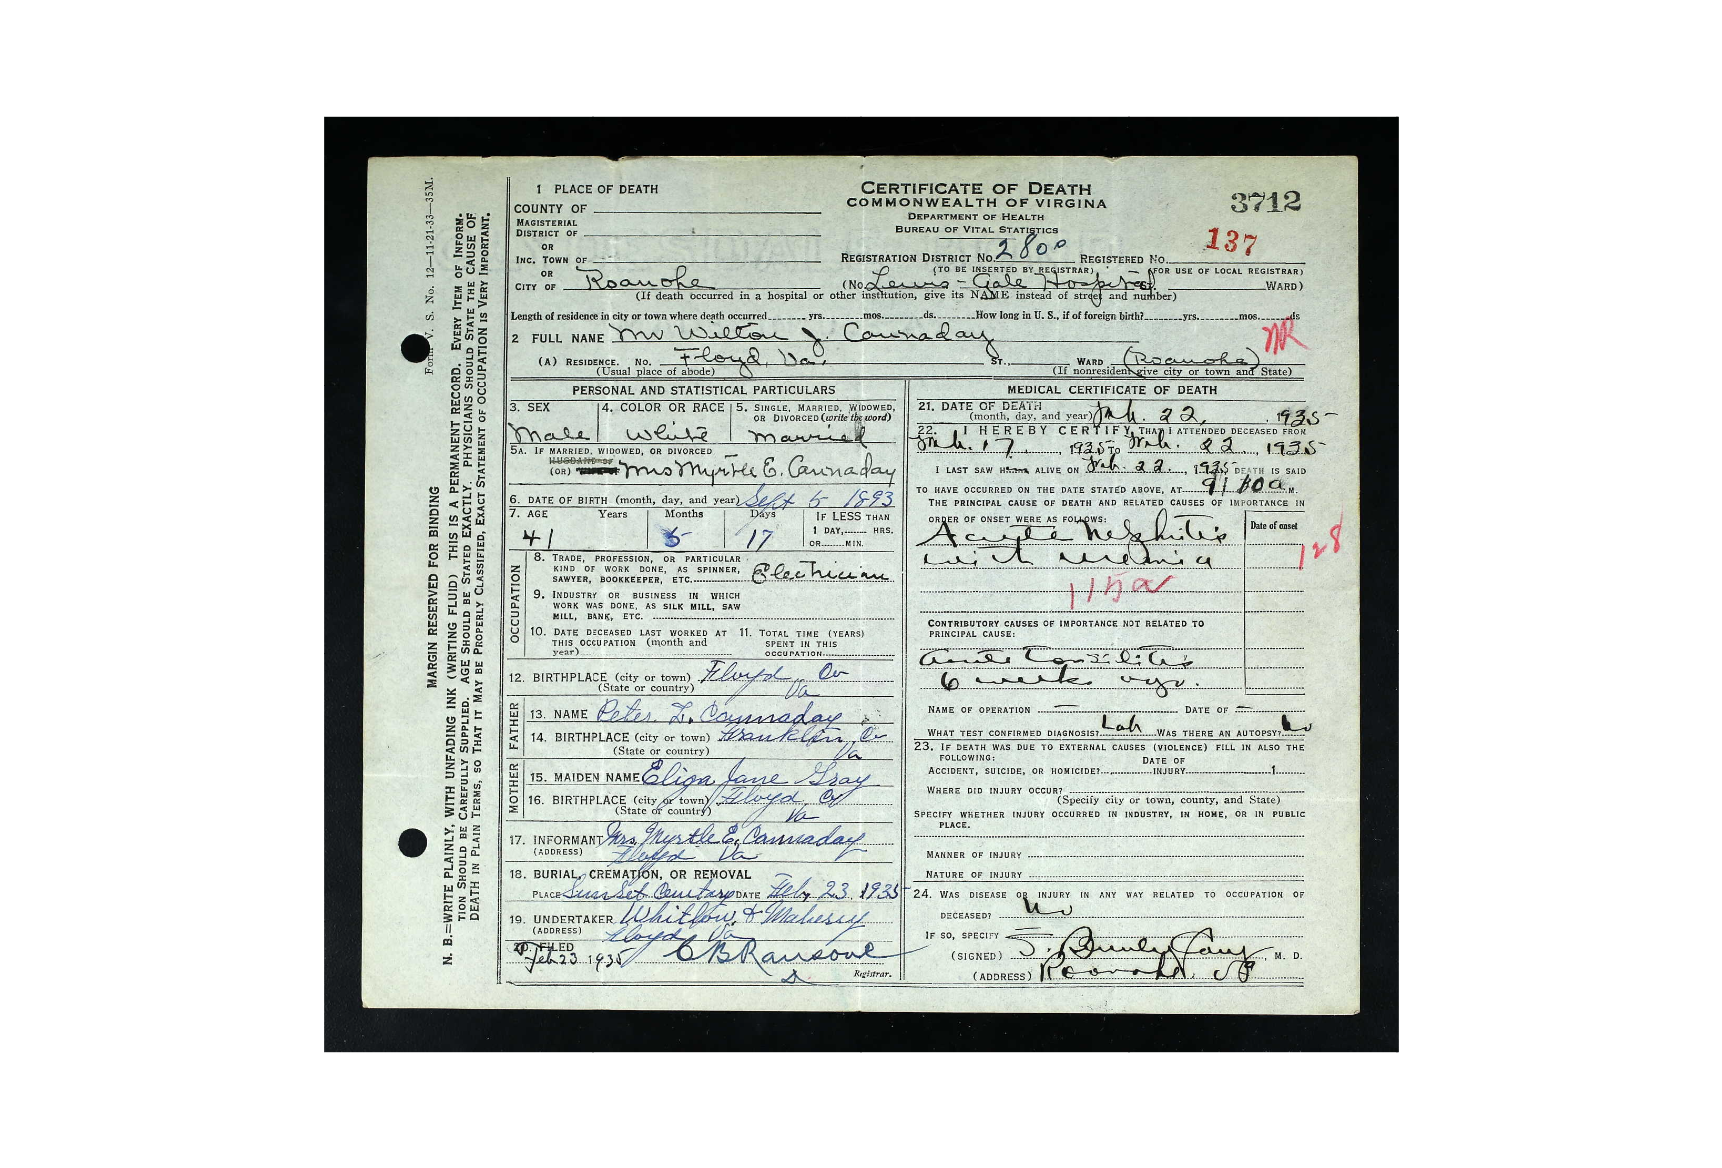 Form V. S. No. 12—11-21-33—35M.
MARGIN RESERVED FOR BINDING
N. B.—WRITE PLAINLY, WITH UNFADING INK (WRITING FLUID) THIS IS A PERMANENT RECORD. EVERY ITEM OF INFORM-
TION SHOULD BE CAREFULLY SUPPLIED. AGE SHOULD BE STATED EXACTLY. PHYSICIANS SHOULD STATE THE CAUSE OF
DEATH IN PLAIN TERMS, SO THAT IT MAY BE PROPERLY CLASSIFIED, EXACT STATEMENT OF OCCUPATION IS VERY IMPORTANT.
1 PLACE OF DEATH
COUNTY OF
MAGISTERIAL
DISTRICT OF
OR
INC. TOWN OF
OR
CITY OF Roanoke
CERTIFICATE OF DEATH
COMMONWEALTH OF VIRGINA
DEPARTMENT OF HEALTH
BUREAU OF VITAL STATISTICS
3712
137
REGISTRATION DISTRICT NO. 2800 REGISTERED NO.
(TO BE INSERTED BY REGISTRAR) (FOR USE OF LOCAL REGISTRAR)
(No. Lewis-Gale Hospital ST. WARD)
(If death occurred in a hospital or other institution, give its NAME instead of street and number)
Length of residence in city or town where death occurred yrs. mos. ds. How long in U. S., if of foreign birth? yrs. mos. ds
2 FULL NAME Mr Wilton J. Cannaday
NR
(A) RESIDENCE. NO. Floyd, Va. ST. WARD (Roanoke)
(Usual place of abode) (If nonresident give city or town and State)
PERSONAL AND STATISTICAL PARTICULARS
3. SEX 4. COLOR OR RACE 5. SINGLE, MARRIED, WIDOWED,
OR DIVORCED (write the word)
Male White Married
5A. IF MARRIED, WIDOWED, OR DIVORCED
HUSBAND OF
(OR) Mrs Myrtle E. Cannaday
6. DATE OF BIRTH (month, day, and year) Sept 5 1893
7. AGE Years Months Days IF LESS THAN
1 DAY, HRS.
OR MIN.
41 5 17
OCCUPATION
8. TRADE, PROFESSION, OR PARTICULAR
KIND OF WORK DONE, AS SPINNER,
SAWYER, BOOKKEEPER, ETC. Electrician
9. INDUSTRY OR BUSINESS IN WHICH
WORK WAS DONE, AS SILK MILL, SAW
MILL, BANK, ETC.
10. DATE DECEASED LAST WORKED AT 11. TOTAL TIME (YEARS)
THIS OCCUPATION (month and SPENT IN THIS
year) OCCUPATION
12. BIRTHPLACE (city or town) Floyd Co
(State or country) Va
FATHER
13. NAME Peter. L. Cannaday
14. BIRTHPLACE (city or town) Franklin Co
(State or country) Va
MOTHER
15. MAIDEN NAME Eliza Jane Gray
16. BIRTHPLACE (city or town) Floyd Co
(State or country) Va
17. INFORMANT Mrs. Myrtle E. Cannaday
(ADDRESS) Floyd Va
18. BURIAL, CREMATION, OR REMOVAL
PLACE SunSet Cemtary DATE Feb, 23, 1935
19. UNDERTAKER Whitlow & Maberry
(ADDRESS) Floyd Va
20. FILED
Feb 23 1935 C B Ransone
Registrar.
MEDICAL CERTIFICATE OF DEATH
21. DATE OF DEATH
(month, day, and year) Feb. 22, 1935
22. I HEREBY CERTIFY, THAT I ATTENDED DECEASED FROM
Feb. 17, 1935 TO Feb. 22, 1935
I LAST SAW H ALIVE ON Feb. 22, 1935 DEATH IS SAID
TO HAVE OCCURRED ON THE DATE STATED ABOVE, AT a. M.
THE PRINCIPAL CAUSE OF DEATH AND RELATED CAUSES OF IMPORTANCE IN
ORDER OF ONSET WERE AS FOLLOWS: Date of onset
Acute Nephritis
with uremia
128
115a
CONTRIBUTORY CAUSES OF IMPORTANCE NOT RELATED TO
PRINCIPAL CAUSE:
acute tonsilitis
6 weeks ago.
NAME OF OPERATION — DATE OF —
WHAT TEST CONFIRMED DIAGNOSIS? Lab WAS THERE AN AUTOPSY? No
23. IF DEATH WAS DUE TO EXTERNAL CAUSES (VIOLENCE) FILL IN ALSO THE
FOLLOWING: DATE OF
ACCIDENT, SUICIDE, OR HOMICIDE? INJURY 1
WHERE DID INJURY OCCUR?
(Specify city or town, county, and State)
SPECIFY WHETHER INJURY OCCURRED IN INDUSTRY, IN HOME, OR IN PUBLIC
PLACE.
MANNER OF INJURY
NATURE OF INJURY
24. WAS DISEASE OR INJURY IN ANY WAY RELATED TO OCCUPATION OF
DECEASED? No
IF SO, SPECIFY
(SIGNED) M. D.
(ADDRESS) Roanoke, Va